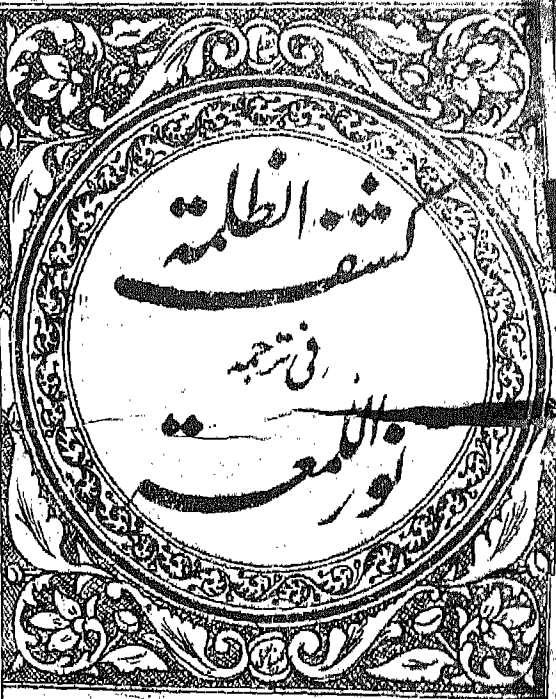 کشف الظلمة
فی ترجمہ
نور اللمعت